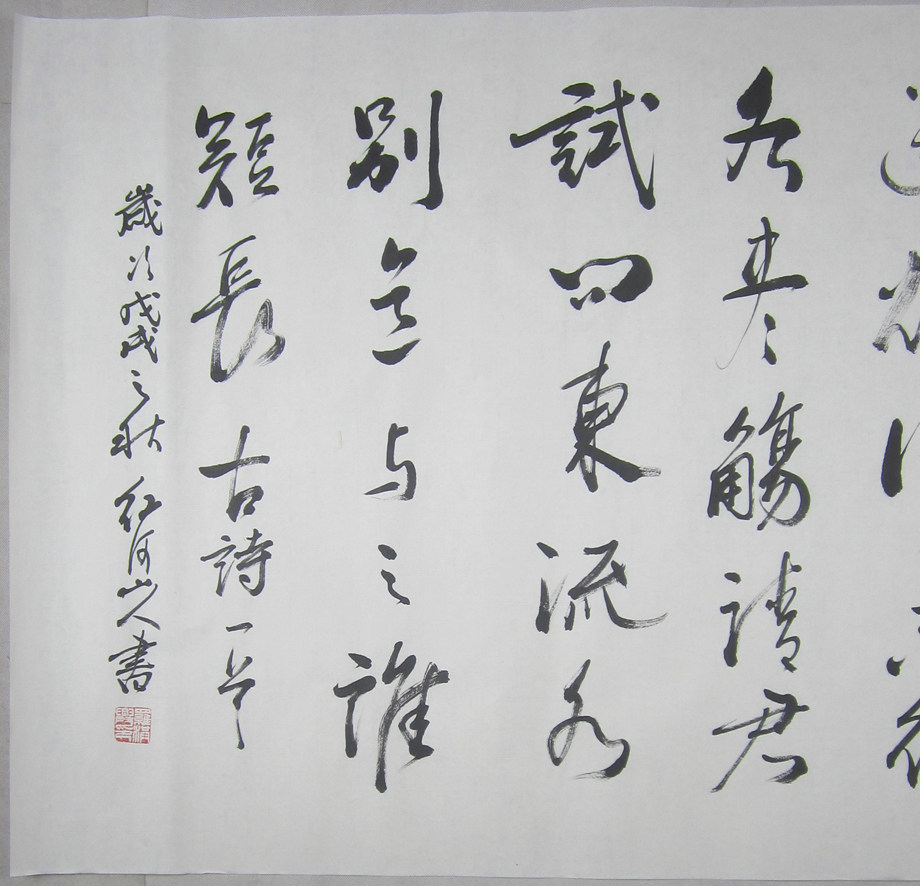 各尽觴請君
試问東流水
別意与之誰
短長 古詩一首
歲次戊戌之秋 红河山人書